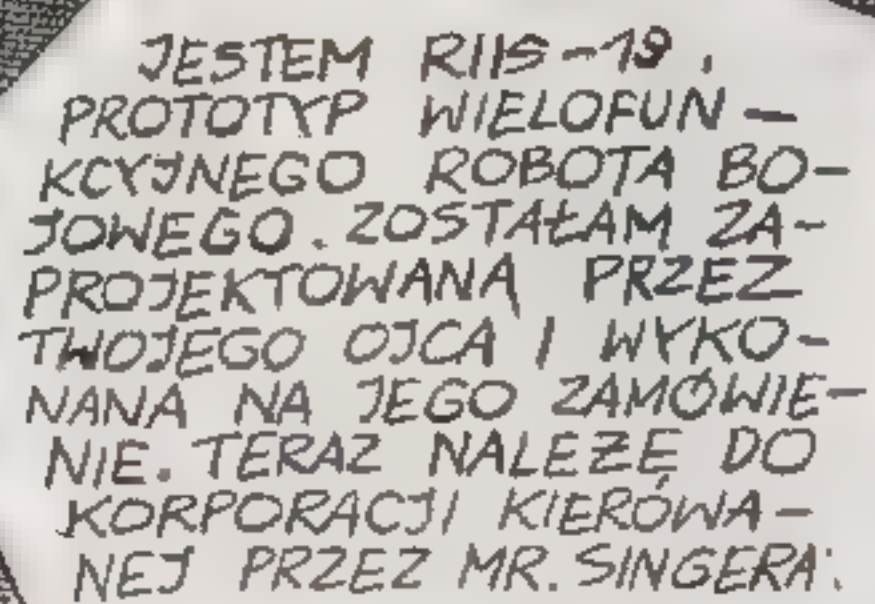 JESTEM RIIS-19.
PROTOTYP WIELOFUN-
KCYJNEGO ROBOTA BO-
JOWEGO. ZOSTAŁAM ZA-
PROJEKTOWANA PRZEZ
TWOJEGO OJCA I WYKO-
NANA NA JEGO ZAMÓWIE-
NIE. TERAZ NALEŻĘ DO
KORPORACJI KIERÓWA-
NEJ PRZEZ MR. SINGERA.